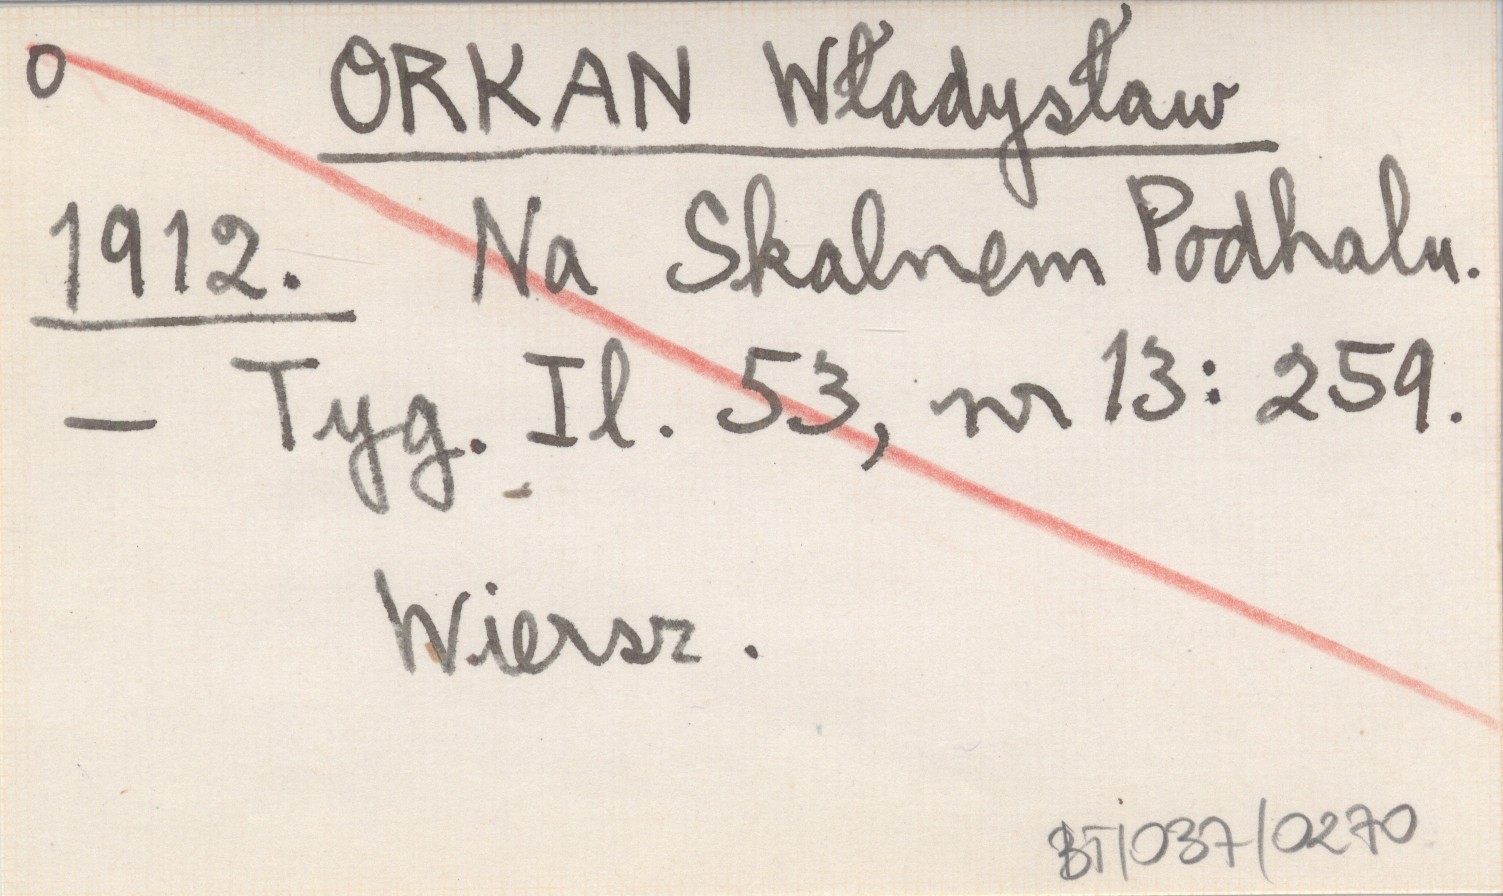 O ORKAN Władysław
1912. Na Skalnem Podhalu.
— Tyg. Il. 53, nr 13: 259.
Wiersz.
BT/037/0270